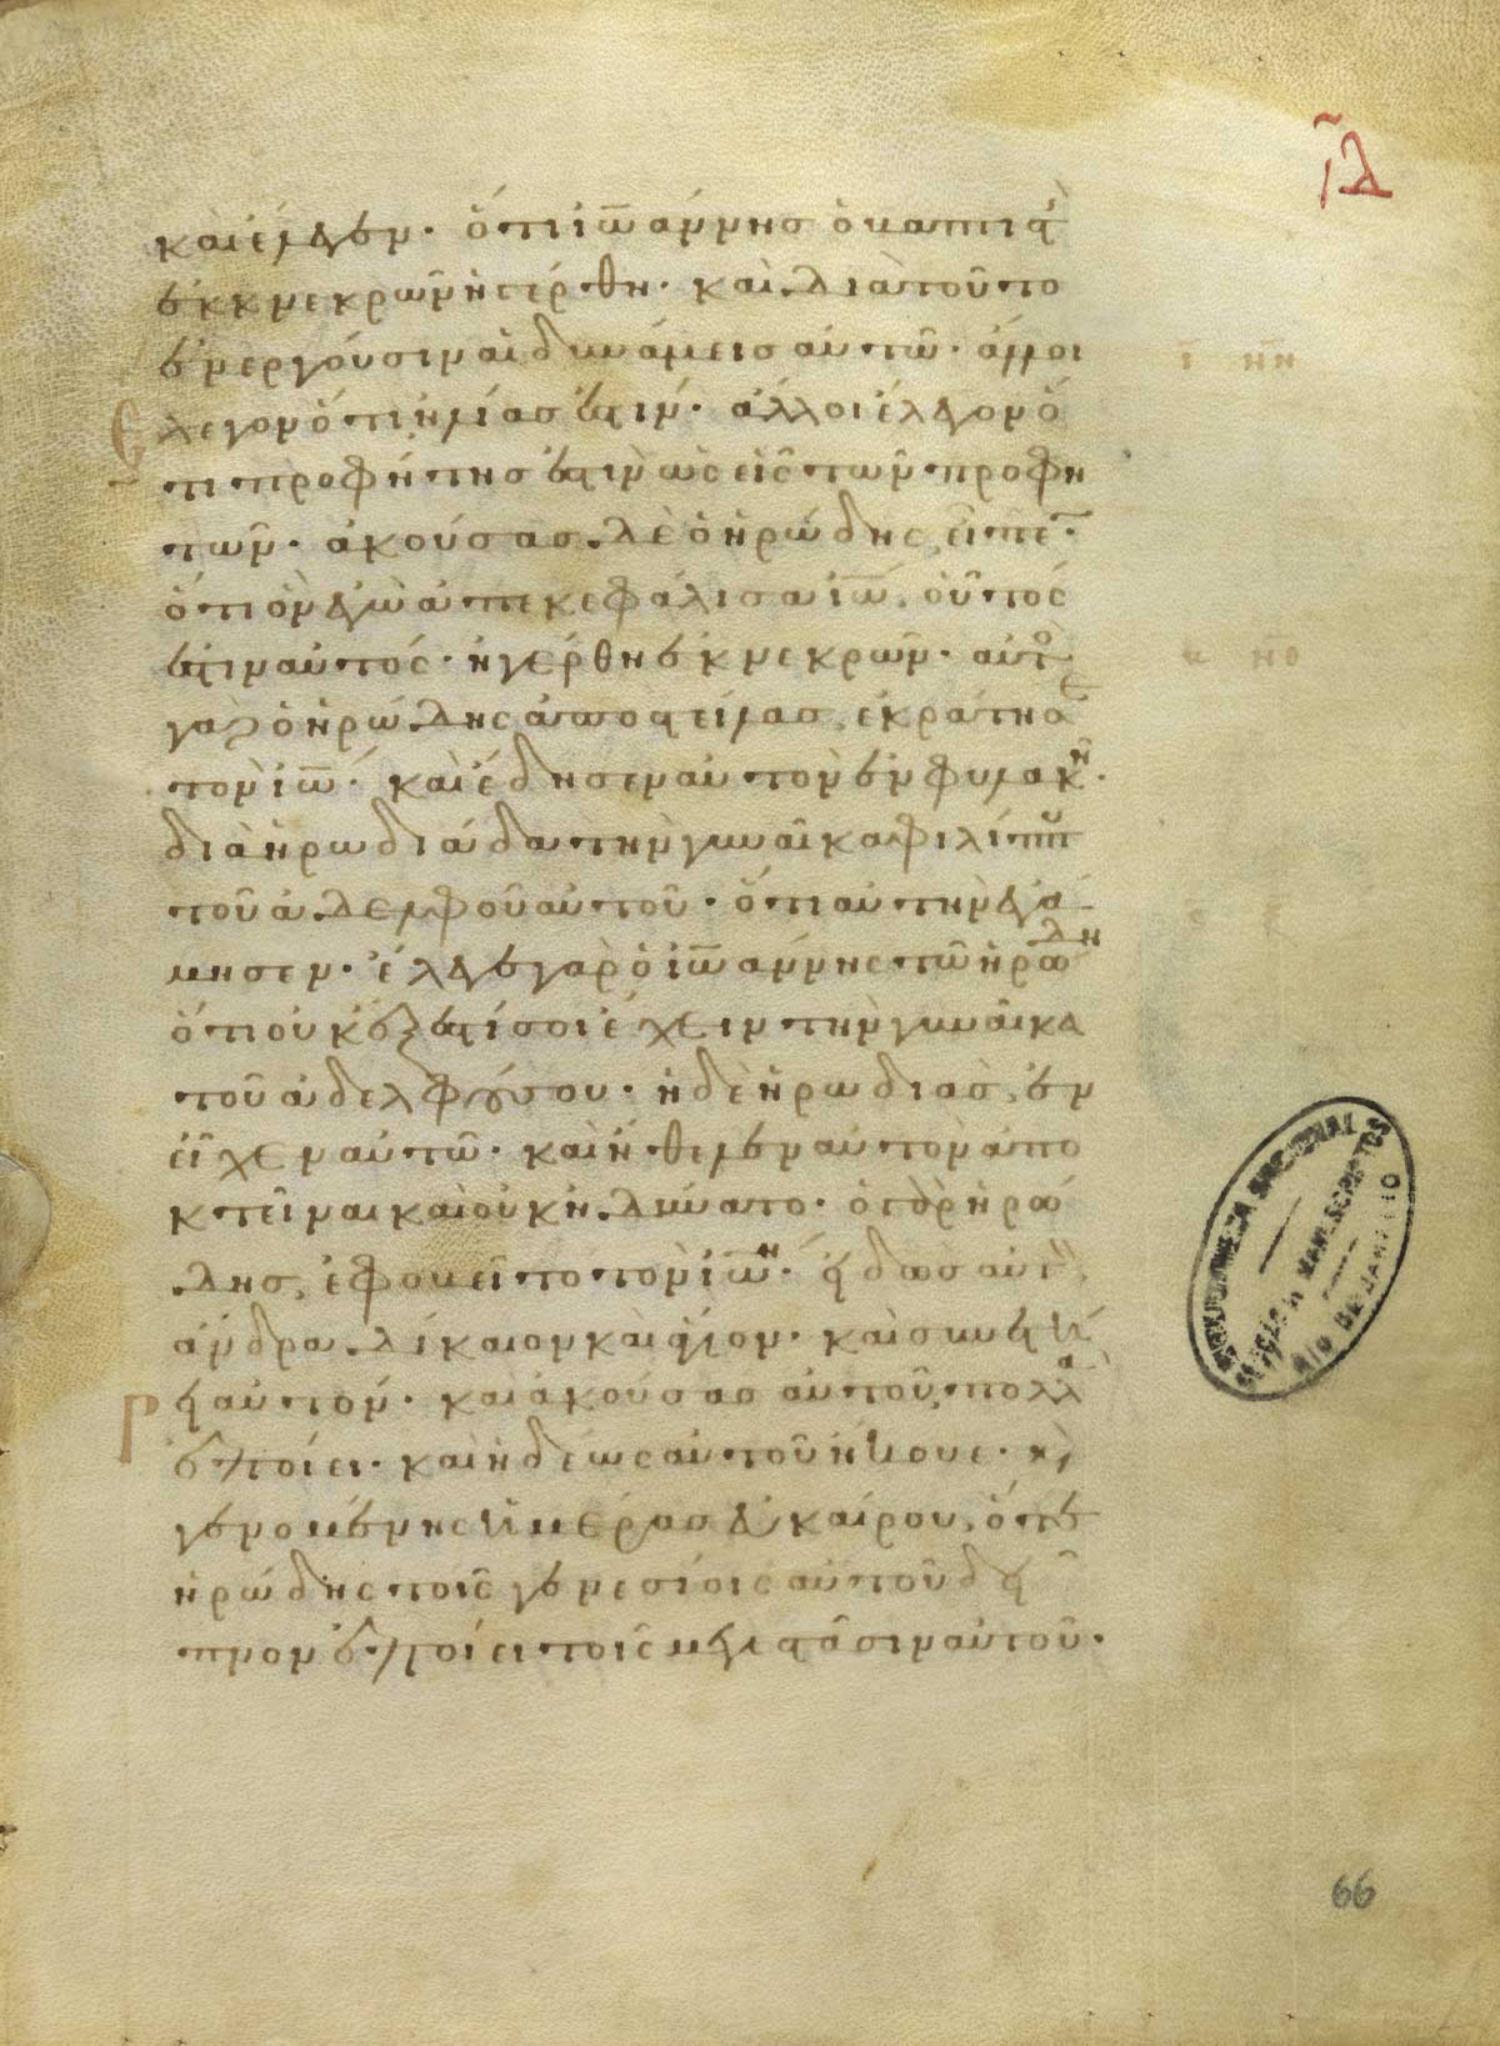 ιδ
καὶ ἔλεγεν· ὅτι ἰω̅άννησ ὁ βαπτιστ
ἐκ νεκρῶν ἠγέρθη· καὶ διατοῦτο
ἐνεργοῦσιν αἱ δυνάμεισ αὐτῶ· ἄλλοι
ἔλεγον ὅτι ἠλίασ ἐστιν· ἄλλοι ἔλεγον ὅ
τι προφήτησ ἐστιν ὡς εἷς τῶν προφη
τῶν· ἀκούσασ δὲ ὁ ἡρώδης, εἶπε·
ὅτι ὃν ἐγὼ ἀπεκεφάλισα ἰω̅, οὗτός
ἐστιν αὐτός· ἠγέρθη ἐκ νεκρῶν· αὐτο
γαρ ὁ ἡρώδης ἀποστείλασ, ἐκράτησε
τὸν ἰω̅· καὶ ἔδησεν αὐτὸν ἐν φυλακῆ·
διὰ ἡρωδιάδα τὴν γυναῖκα φιλίππου
τοῦ ἀδελφοῦ αὐτοῦ· ὅτι αὐτὴν ἐγά
μησεν· ἔλεγε γὰρ ὁ ἰω̅άννης τῶ ἡρώδη
ὅτι οὐκ ἔξεστί σοι ἔχειν τὴν γυναῖκα
τοῦ ἀδελφοῦ σου· ἡ δὲ ἡρωδιὰσ, ἐν
εῖχεν αὐτῶ· καὶ ἤθελεν αὐτὸν ἀπο
κτεῖναι καὶ οὐκ ἠδύνατο· ὁ γὰρ ἡρώ
δησ, ἐφοβεῖτο τὸν ἰω̅ην· εἰδὼσ αὐτὸν,
ἄνδρα δίκαιον καὶ ἅγιον· καὶ συνετή
ρει αὐτόν· καὶ ἀκούσασ αὐτοῦ, πολλὰ
ἐποίει· καὶ ἡδέως αὐτοῦ ἤκουε· κὶ
γενομένης ἡμέρασ εὐκαίρου, ὅτε
ἡρώδης τοῖς γενεσίοις αὐτοῦ δεῖ
πνον ἐποίει τοῖς μεγιστᾶσιν αὐτοῦ·
BIBLIOTHECA NACIONAL
SECÇÃO DE MANUSCRIPTOS
RIO DE JANEIRO
66